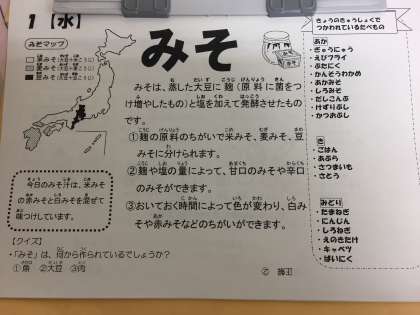 1【水】
みそ
みそマップ
米みそ
麦みそ
豆みそ
みそは、蒸した大豆に麹(原料に菌をつ
け増やしたもの)と塩を加えて発酵させたもの
です。
①麹の原料のちがいで米みそ、麦みそ、豆
みそに分けられます。
②麹や塩の量によって、甘口のみそや辛口
のみそができます。
③おいておく時間によって色が変わり、白み
そや赤みそなどのちがいができます。
今日のみそ汁は、米みそ
の赤みそと白みそを混ぜて
味つけしています。
【クイズ】
・「みそ」は、何から作られているでしょうか?
①魚 ②大豆 ③肉
きょうのきゅうしょくで
つかわれているたべもの
あか
・ぎゅうにゅう
・えびフライ
・ぶたにく
・かんそうわかめ
・あかみそ
・しろみそ
・だしこんぶ
・けずりぶし
・かつおぶし
き
・ごはん
・あぶら
・さつまいも
・さとう
みどり
・たまねぎ
・にんじん
・しろねぎ
・えのきたけ
・キャベツ
・ぱいにく